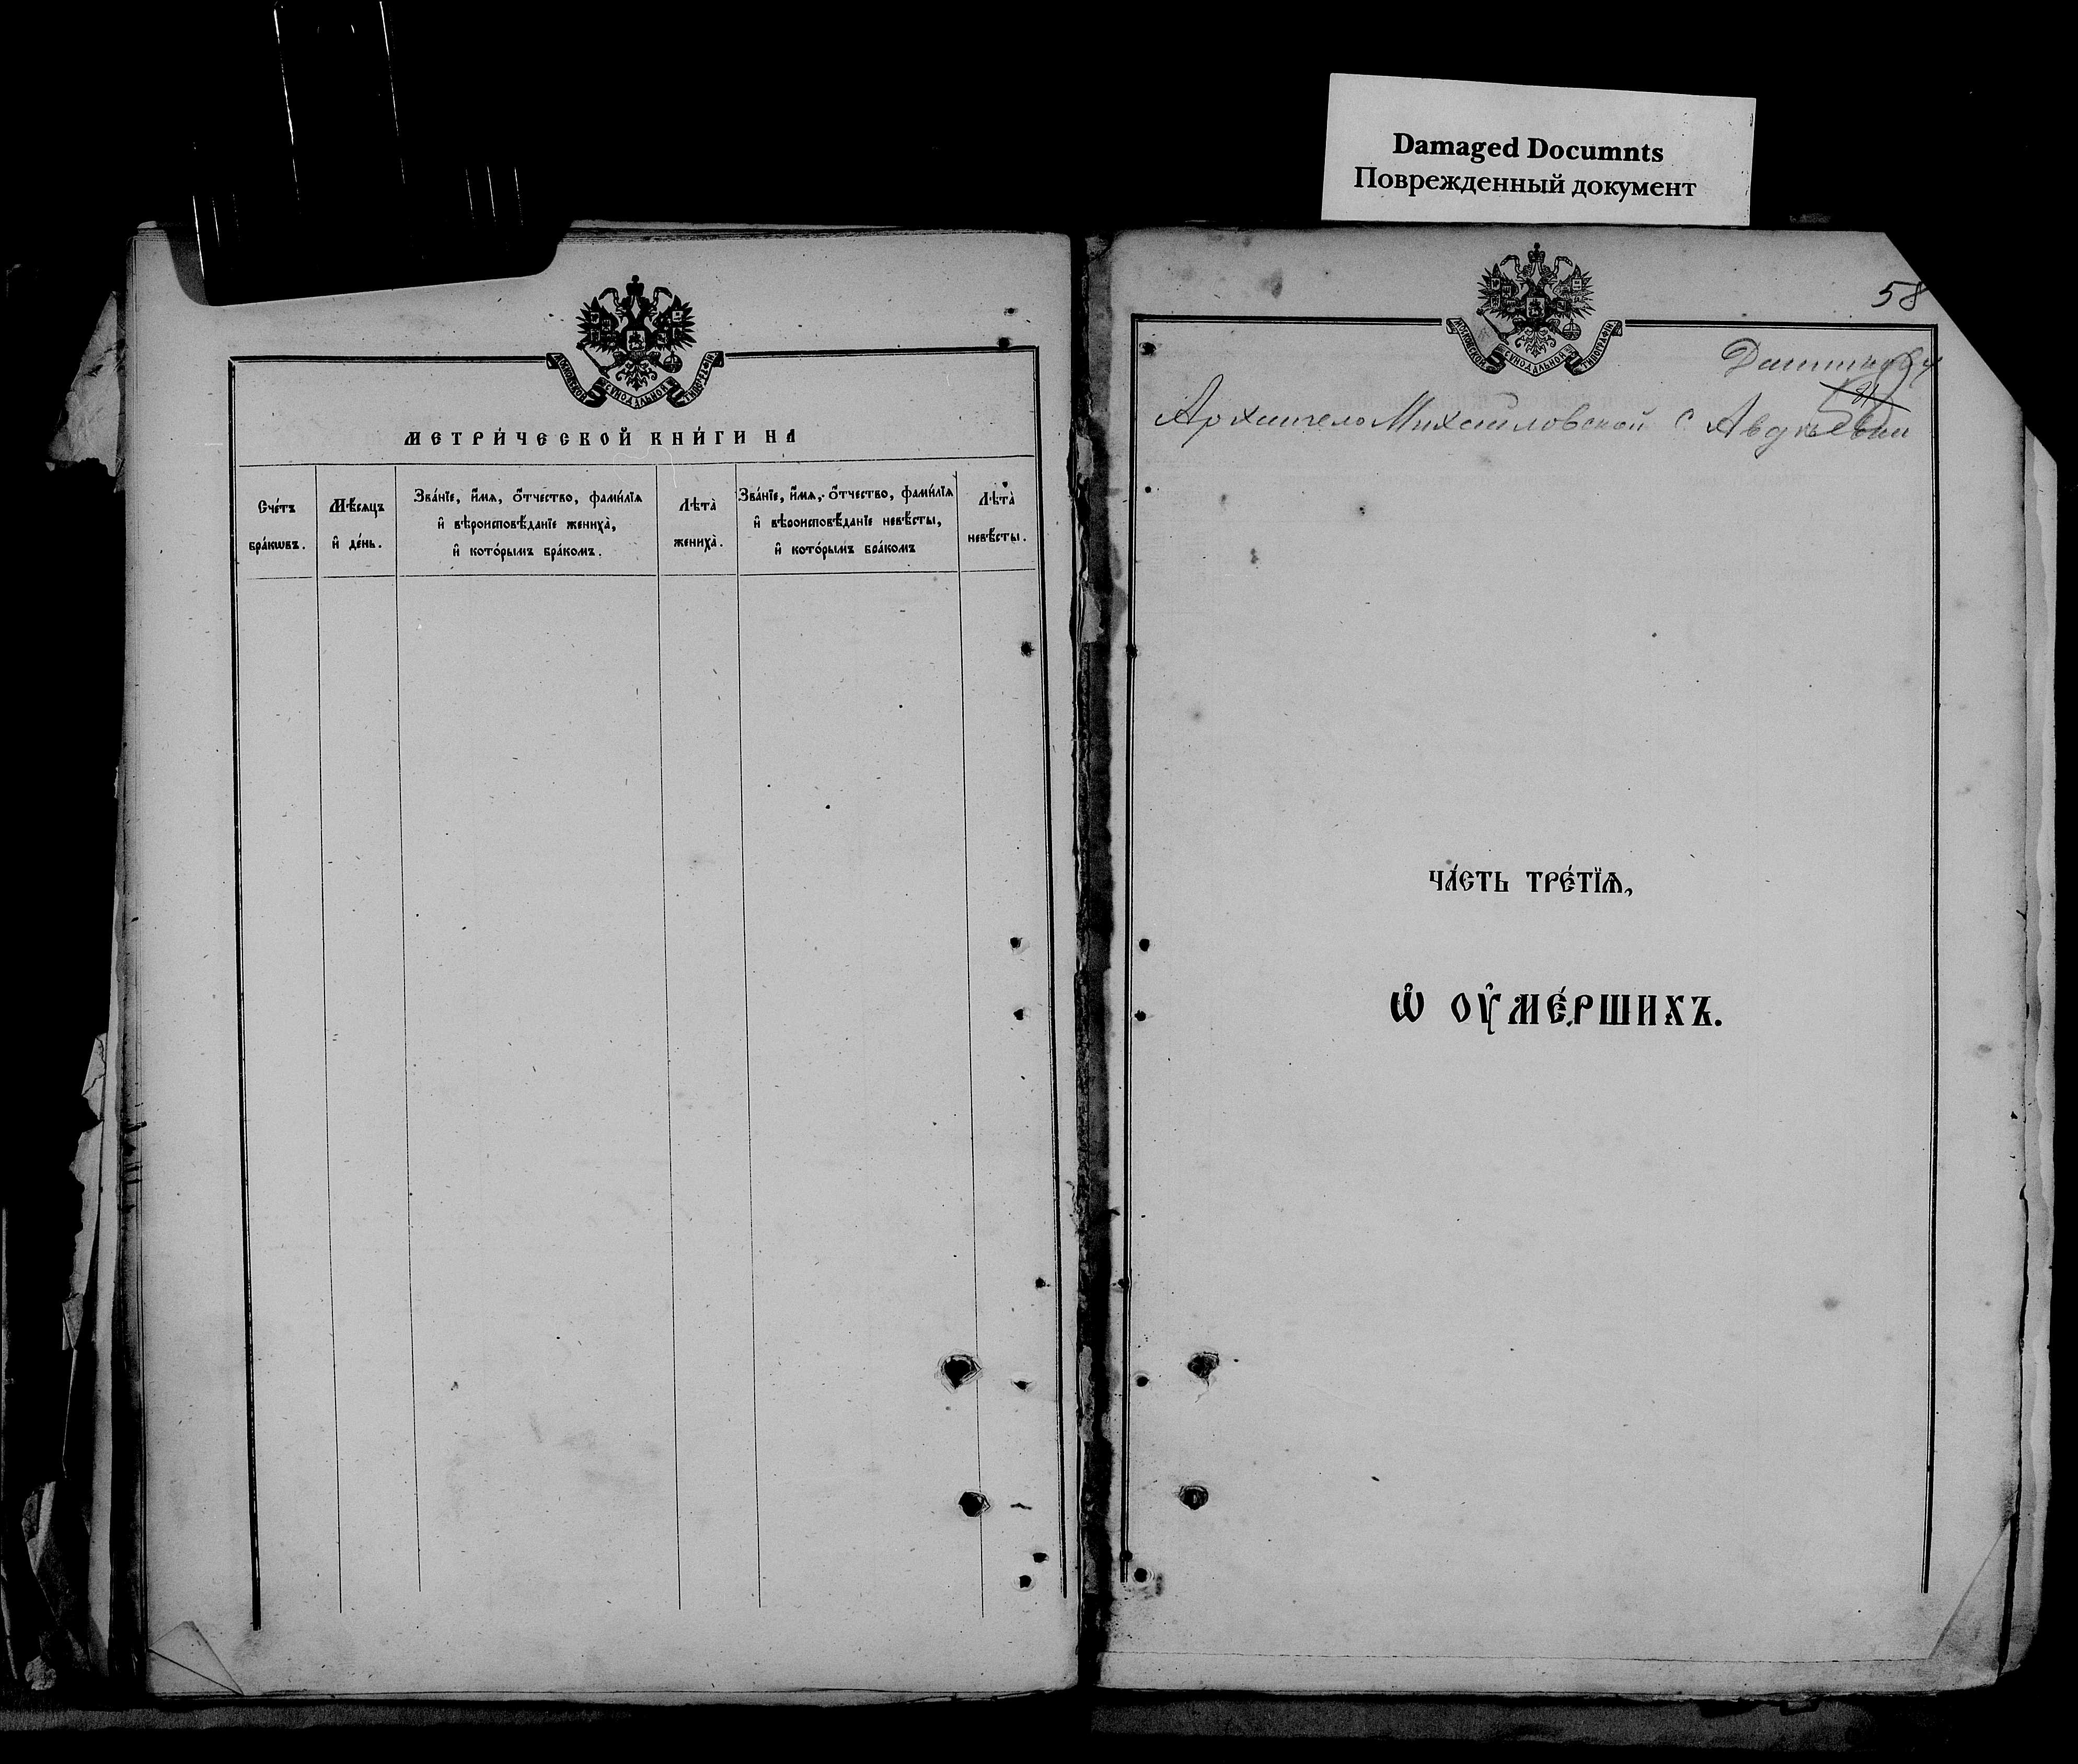 Damaged Documnts
Поврежденный документ
МОСКОВСКОЙ СѴНОДАЛЬНОЙ ТИПОГРАФІИ
МЕТРИ́ЧЕСКОЙ КНИ́ГИ НА
Сче́тъ бра́кѡвъ.
Мѣ́сяцъ и҆ де́нь.
Зва́нїе, и҆́мѧ, ѻ҆́тчество, фамѝлїѧ
и҆ вѣроисповѣ́данїе жениха̀,
и҆ кото́рымъ бра́комъ.
Лѣта̀ жениха̀.
Зва́нїе, и҆́мѧ, ѻ҆́тчество, фамѝлїѧ
и҆ вѣроисповѣ́данїе невѣ́сты,
и҆ кото́рымъ бра́комъ
Лѣта̀ невѣ́сты.
МОСКОВСКОЙ СѴНОДАЛЬНОЙ ТИПОГРАФІИ
58
Архангело Михайловской с. Авдѣевки
ЧА́СТЬ ТРЕ́ТЇѦ,
Ѽ ОУ҆МЕ́РШИХЪ.